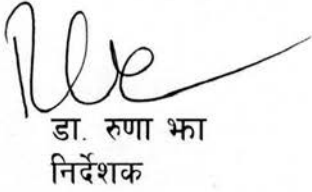 डा. रुणा झा
निर्देशक